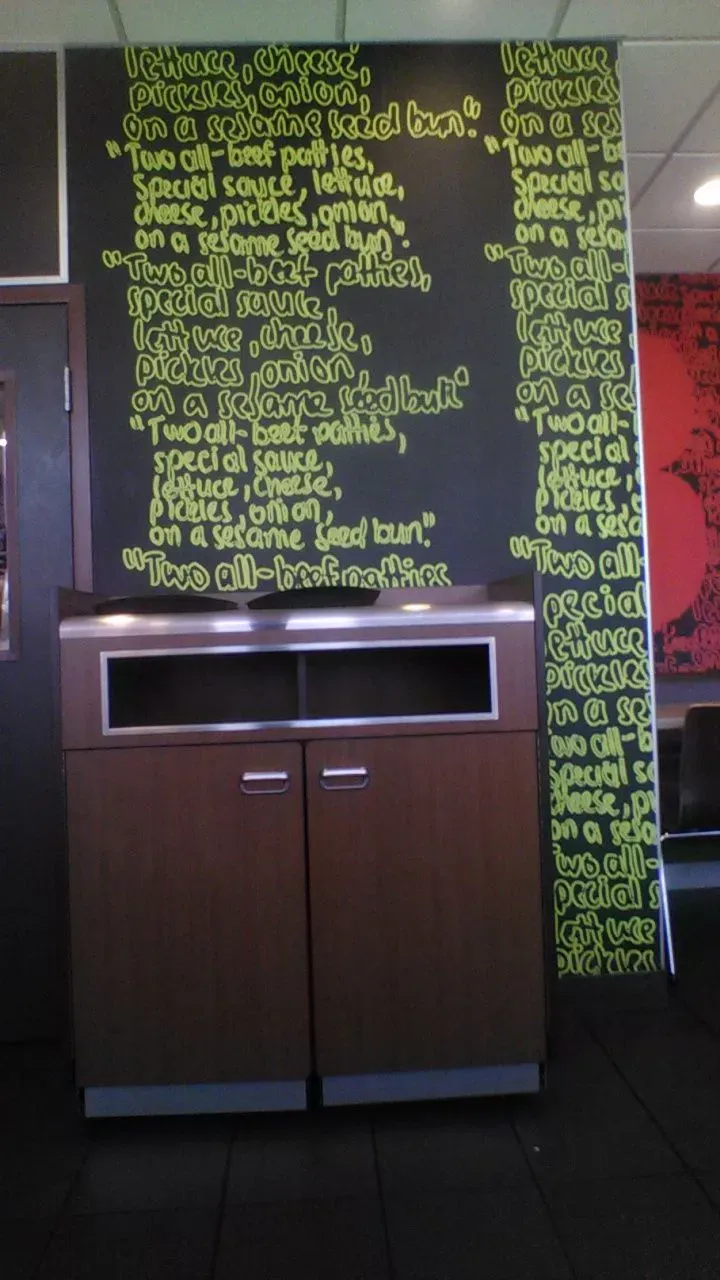 lettuce, cheese,
pickles, onion,
on a sesame seed bun."
"Two all-beef patties,
special sauce, lettuce,
cheese, pickles, onion,
on a sesame seed bun".
"Two all-beef patties,
special sauce,
lettuce, cheese,
pickles, onion
on a sesame seed bun"
"Two all-beef patties,
special sauce,
lettuce, cheese,
pickles, onion,
on a sesame seed bun."
"Two all-beef patties
lettuce
pickles
on a ses
"Two all-b
special so
cheese, pi
on a sesam
"Two all-
special s
lettuce
pickles
on a se
"Two all-
special
lettuce
pickles,
on a sesa
"Two all-
pecial
lettuce
pickles
on a se
wo all-b
special sa
cheese, pi
on a sesa
Two all-
pecial s
lettuce
pickles